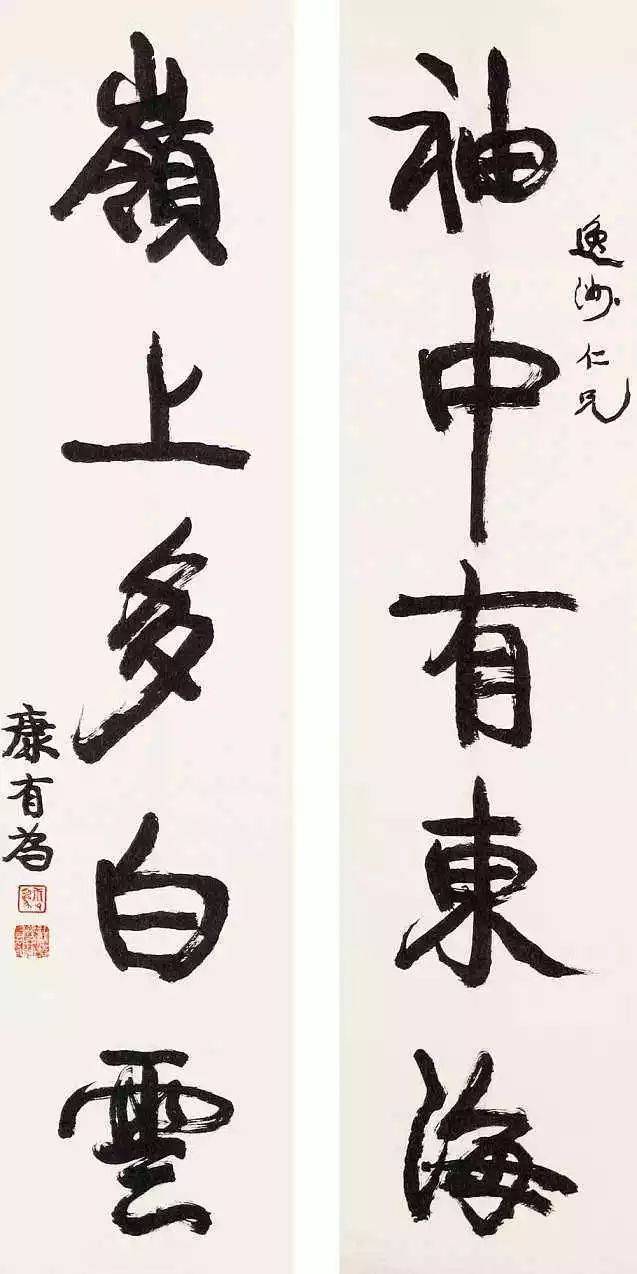 袖中有東海
逸洲仁兄
嶺上多白雲
康有為